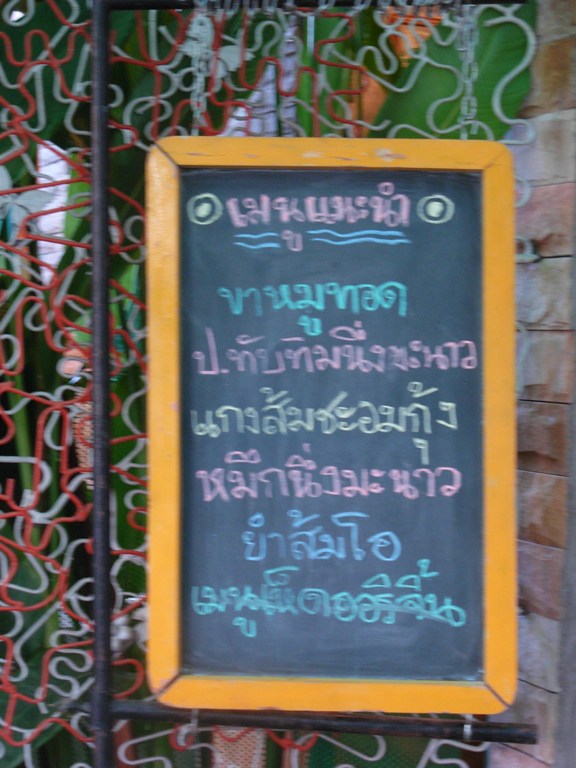 เมนูแนะนำ
ขาหมูทอด
ป.ทับทิมนึ่งมะนาว
แกงส้มชะอมกุ้ง
หมึกนึ่งมะนาว
ยำส้มโอ
เมนูเห็ดออรินจิ